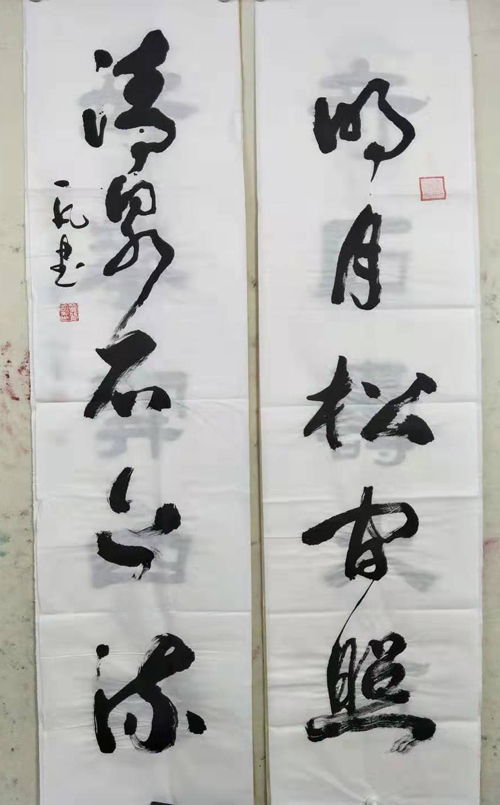 明月松间照
清泉石上流
书